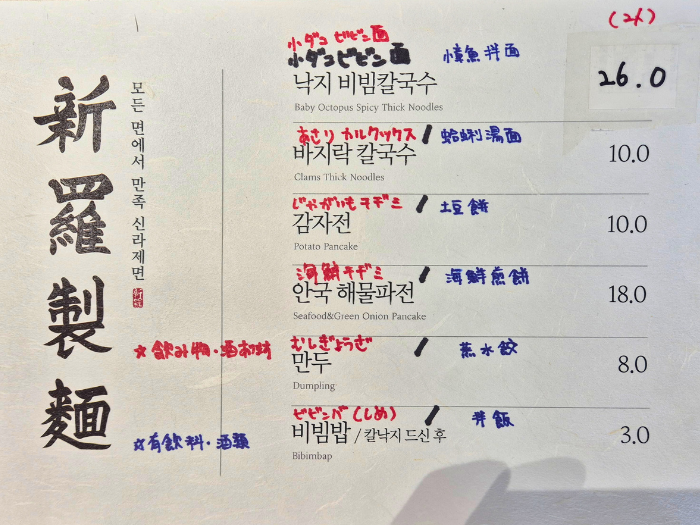 新羅製麵
모든 면에서 만족 신라제면
(2人)
小ダコ ビビン 面
小ダコビビン 面
章魚拌面
낙지 비빔칼국수
26.0
Baby Octopus Spicy Thick Noodles
あさり カルクックス
蛤蜊湯面
바지락 칼국수
10.0
Clams Thick Noodles
じゃがいもチヂミ
土豆餅
감자전
10.0
Potato Pancake
海鮮チヂミ
海鮮煎餅
안국 해물파전
18.0
Seafood&Green Onion Pancake
☆飲み物・酒
むしぎょうざ
蒸水餃
만두
8.0
Dumpling
☆有飲料・酒類
ビビンバ(しめ)
拌飯
비빔밥 / 칼낙지 드신 후
3.0
Bibimbap